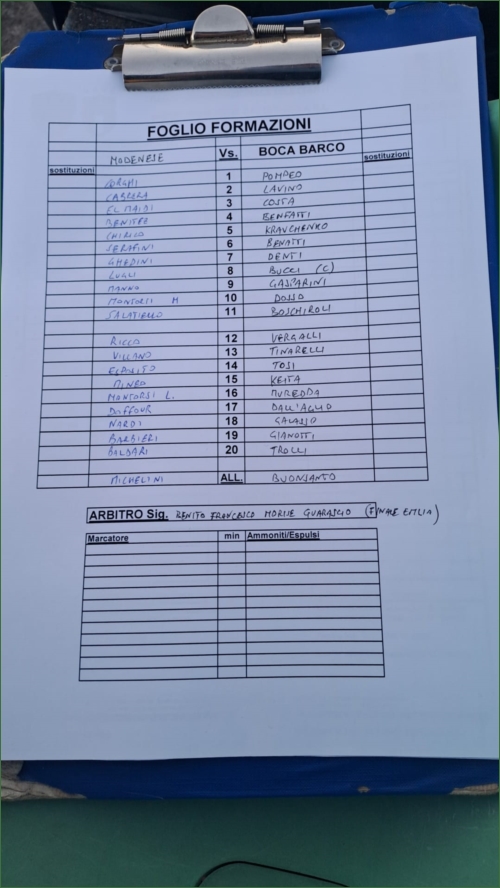 FOGLIO FORMAZIONI
MODENESE Vs. BOCA BARCO
sostituzioni sostituzioni
BORGHI 1 POMPEO
CABRERA 2 LAVINO
EL MAIDI 3 COSTA
BENITEZ 4 BENFATTI
CHIRICO 5 KRAVCHENKO
SERAFINI 6 BENATTI
GHEDINI 7 DENTI
LUGLI 8 BUCCI (C)
MANNO 9 GASPARINI
MONTORSI M 10 DOSSO
SALATIELLO 11 BOSCHIROLI
RICCO 12 VERGALLI
VILLANO 13 TINARELLI
ESPOSITO 14 TOSI
MINEO 15 KEITA
MONTORSI L. 16 MUREDDA
DAFFOUR 17 DALL'AGLIO
NARDI 18 GALASSO
BARBIERI 19 GIANOTTI
BALDARI 20 TROLLI
MICHELINI ALL. BUONSANTO
ARBITRO Sig. BENITO FRANCESCO MORLIE GUARASCIO (FINALE EMILIA)
Marcatore min Ammoniti/Espulsi